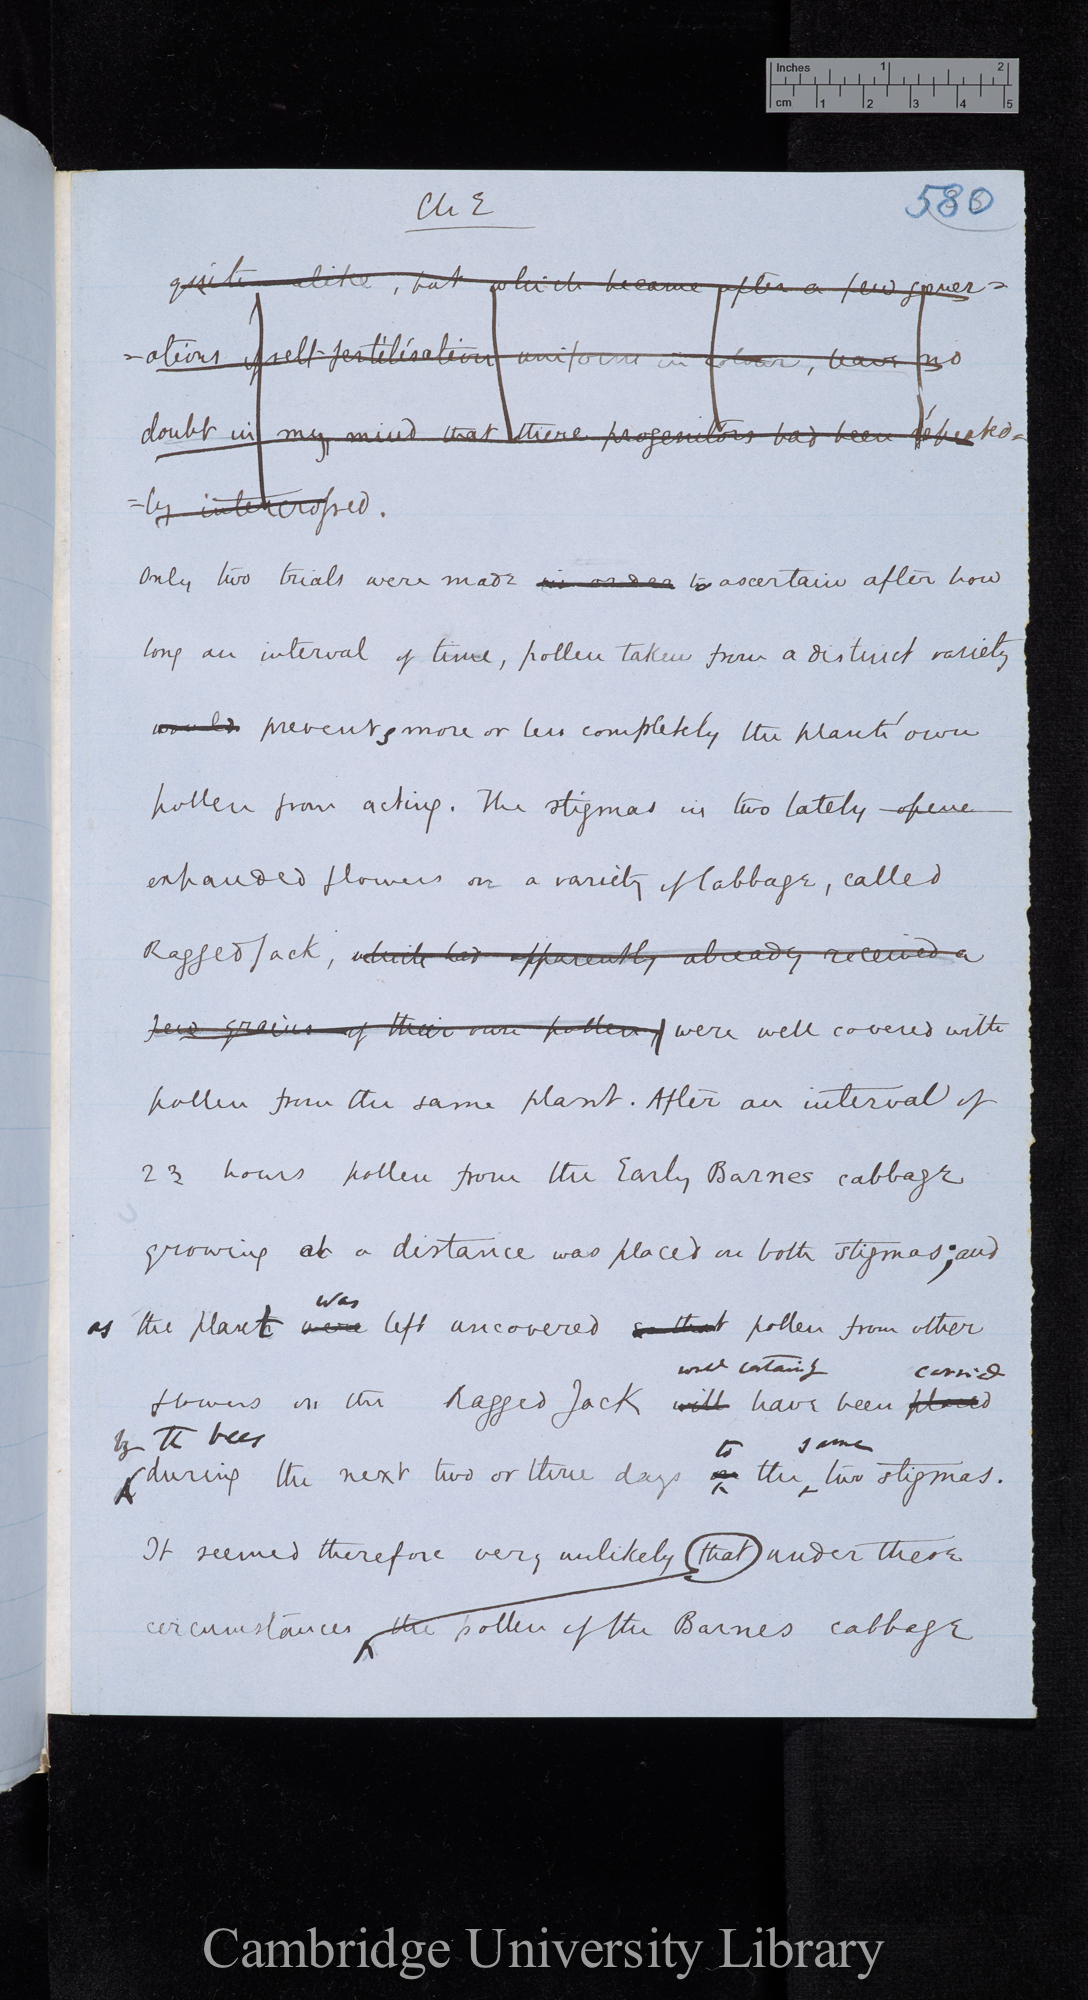 Inches 1 2
cm 1 2 3 4 5
Ch E
580
quite alike, but which became after a few gener=
=ations of self-fertilisation uniform in colour, have no
doubt in my mind that there progenitors had been repeated=
=ly intercrossed.
Only two trials were made in order to ascertain after how
long an interval of time, pollen taken from a distinct variety
would prevents more or less completely the plants' own
pollen from acting. The stigmas in two lately opene
expanded flowers on a variety of Cabbage, called
Ragged Jack, which had apparently already received a
few grains of their own pollen, were well covered with
pollen from the same plant. After an interval of
23 hours pollen from the Early Barnes cabbage
growing at a distance was placed on both stigmas; and
was
as the plant were left uncovered so that pollen from other
will certainly carried
flowers on the Ragged Jack will have been placed
by the bees to same
during the next two or three days on the two stigmas.
It seemed therefore very unlikely that under these
circumstances the pollen of the Barnes cabbage
Cambridge University Library